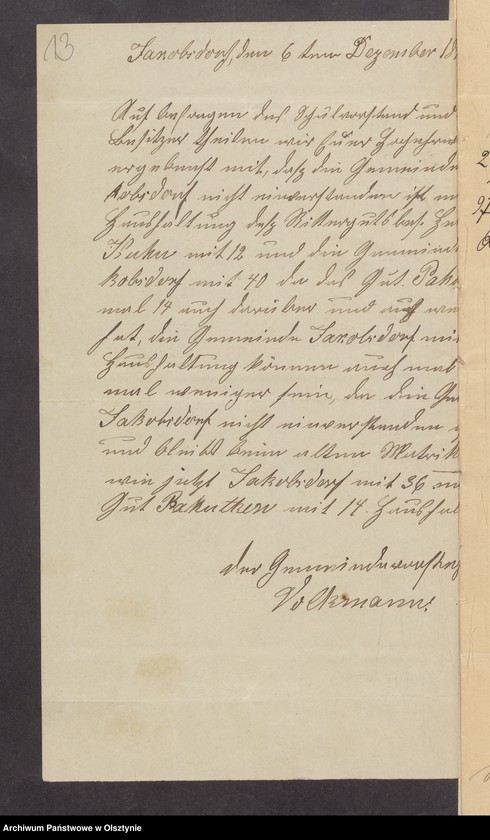 13
Jakobsdorf, den 6 ten Dezember 18
Auf Anfragen des Schulvorstand und
Besitzer theilen wir Euer Hochehrw
ergebenst mit, daß die Gemeinde
kobsdorf nicht einverstanden ist
Haushaltung deß Rittergutsbes. He
Kuhn mit 12 und die Gemeind
kobsdorf mit 40 da das Gut. Pak
mal 14 auch darüber und auch we
hat, die Gemeinde Jakobsdorf mi
Haushaltung können auch mal
mal weniger sein, da die Ge
Jakobsdorf nicht einverstanden
und bleibt beim alten Matrik
wie jetzt Jakobsdorf mit 36 un
Gut Pakutken mit 14. Haushal
der Gemeindevorsteh
Volkmann.
2
97
6
Archiwum Państwowe w Olsztynie